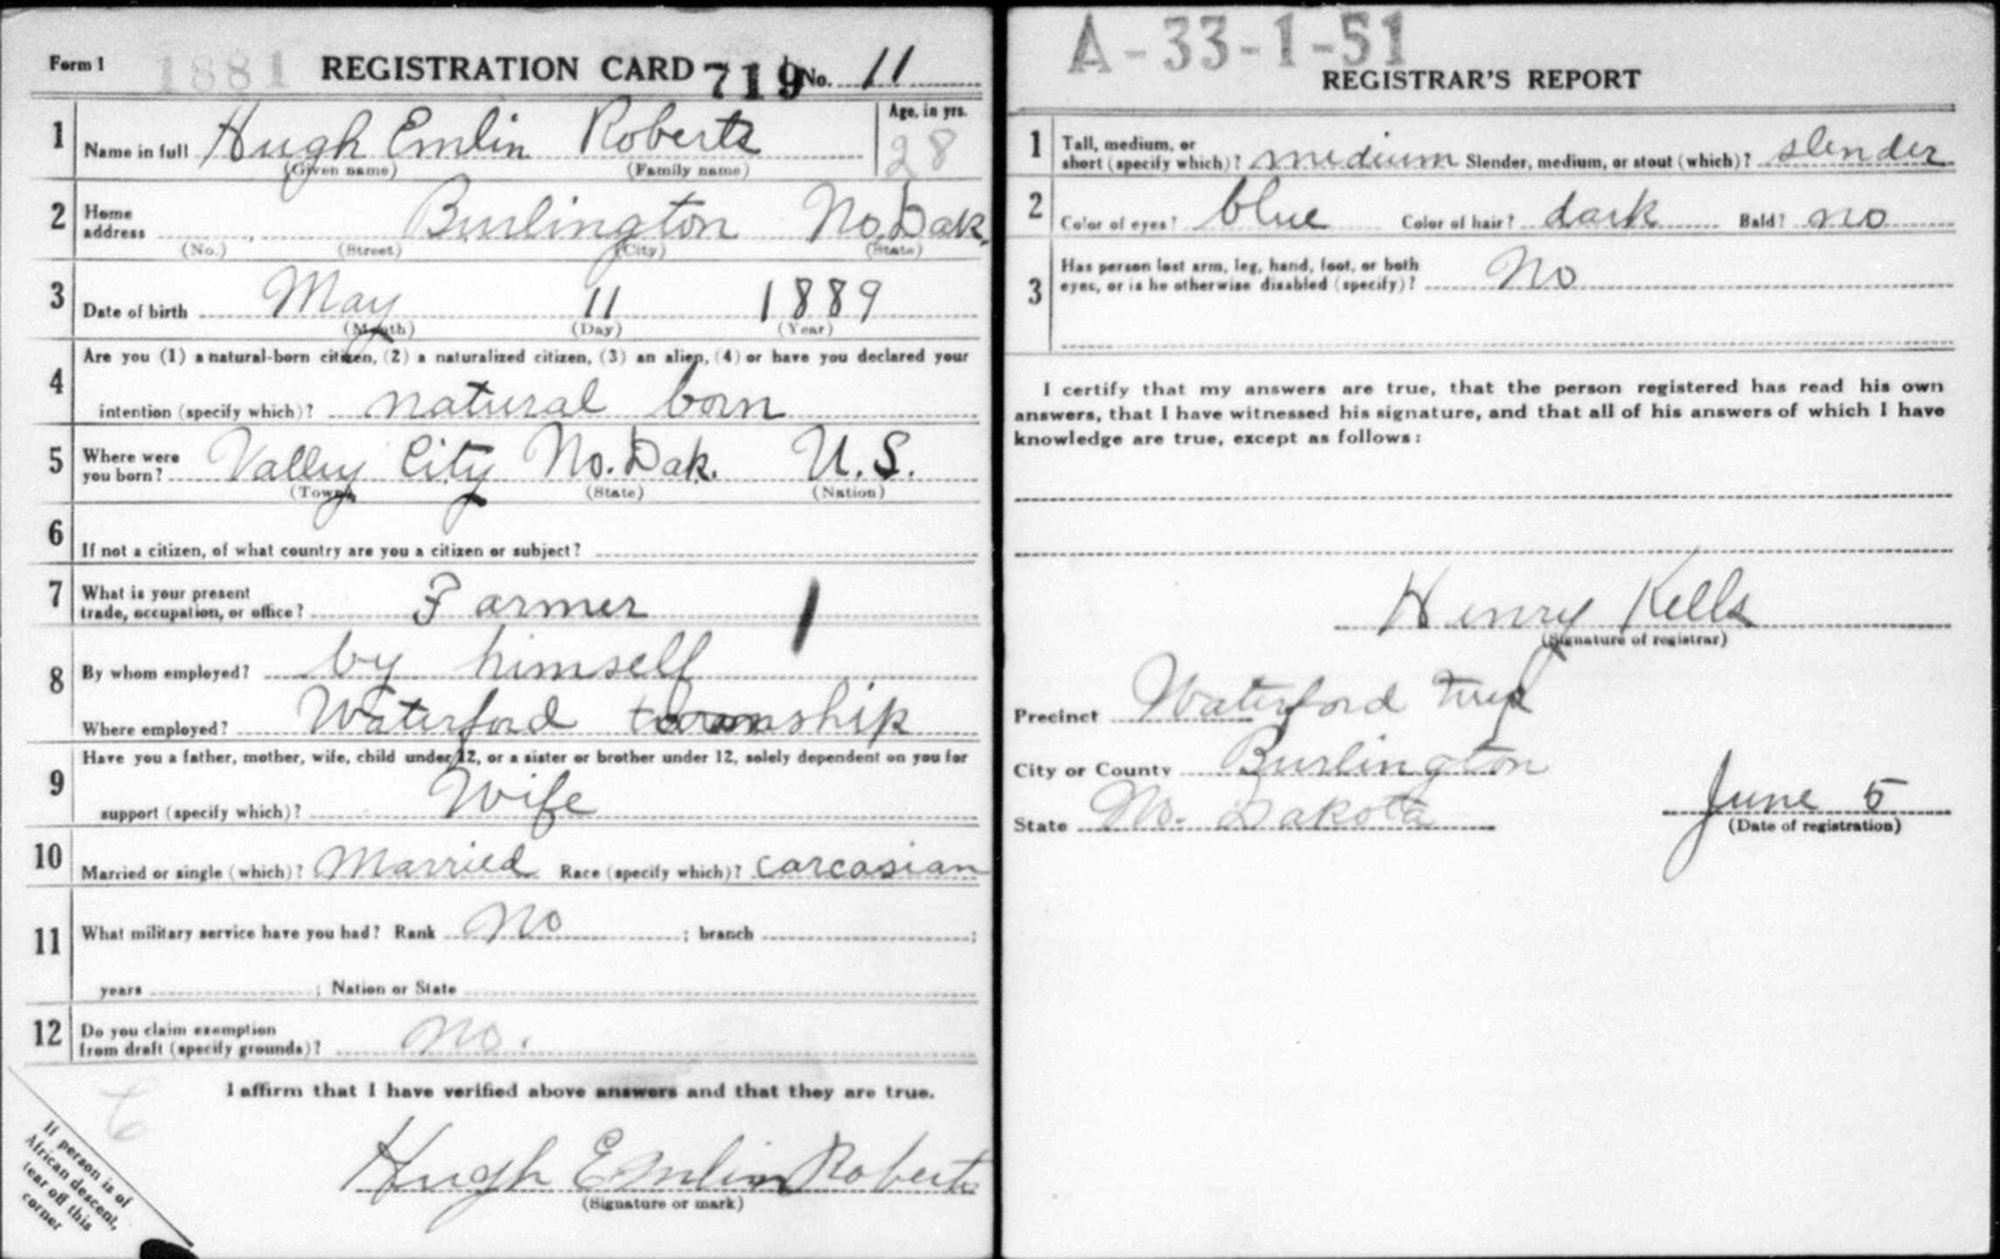 Form 1 1881 REGISTRATION CARD 719 No. 11
1 Name in full Hugh Emlin Roberts Age, in yrs. 28
(Given name) (Family name)
2 Home address Burlington No. Dak.
(No.) (Street) (City) (State)
3 Date of birth May 11 1889
(Month) (Day) (Year)
Are you (1) a natural-born citizen, (2) a naturalized citizen, (3) an alien, (4) or have you declared your
4 intention (specify which)? natural born
5 Where were you born? Valley City No. Dak. U.S.
(Town) (State) (Nation)
6 If not a citizen, of what country are you a citizen or subject?
7 What is your present trade, occupation, or office? Farmer 1
8 By whom employed? by himself
Where employed? Waterford township
Have you a father, mother, wife, child under 12, or a sister or brother under 12, solely dependent on you for
9 support (specify which)? Wife
10 Married or single (which)? Married Race (specify which)? carcasian
11 What military service have you had? Rank No ; branch ;
years ; Nation or State
12 Do you claim exemption from draft (specify grounds)? No.
I affirm that I have verified above answers and that they are true.
Hugh Emlin Roberts
(Signature or mark)
If person is of
African descent,
tear off this
corner
A-33-1-51
REGISTRAR'S REPORT
1 Tall, medium, or short (specify which)? medium Slender, medium, or stout (which)? slender
2 Color of eyes? blue Color of hair? dark Bald? no
3 Has person lost arm, leg, hand, foot, or both eyes, or is he otherwise disabled (specify)? No
I certify that my answers are true, that the person registered has read his own
answers, that I have witnessed his signature, and that all of his answers of which I have
knowledge are true, except as follows:
Henry Kells
(Signature of registrar)
Precinct Waterford Twp
City or County Burlington
State No. Dakota June 5
(Date of registration)